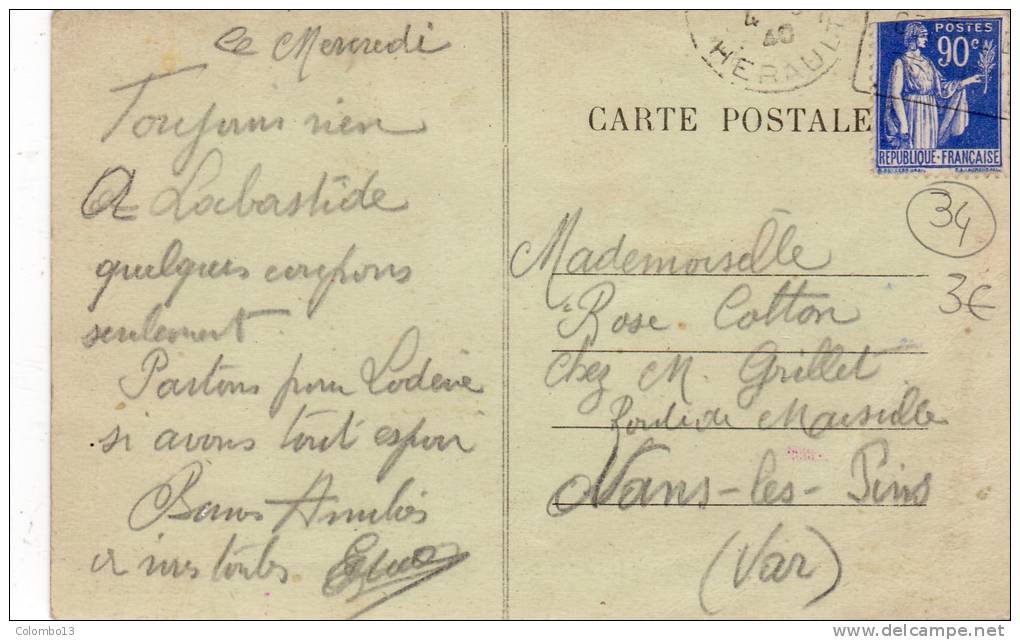 ce Mercredi
Toujours rien
A Labastide
quelques coupons
seulement
Partons pour Lodève
si avons tout espoir
Bons Amitiés
à vous toutes
4
40
HERAULT
POSTES
90c
REPUBLIQUE·FRANÇAISE
CARTE POSTALE
34
3€
Mademoiselle
Rose Cotton
chez M. Grillet
Route de Marseille
Nans-les-Pins
(Var)
Colombo13
www.delcampe.net